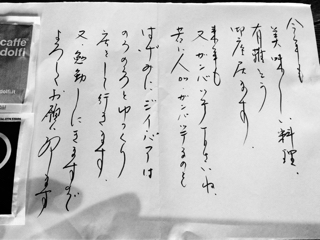 今年も
美味しい料理、
有難とう
御座居ます。
来年も
又ガンバッテ下さいね、
若い人がガンバッテるのを
はげみに、ジイバアは
のろのろとゆっくり
座をして行きます。
又、勉強しにきますので
よろしくお願い致します
caffe
dolfi